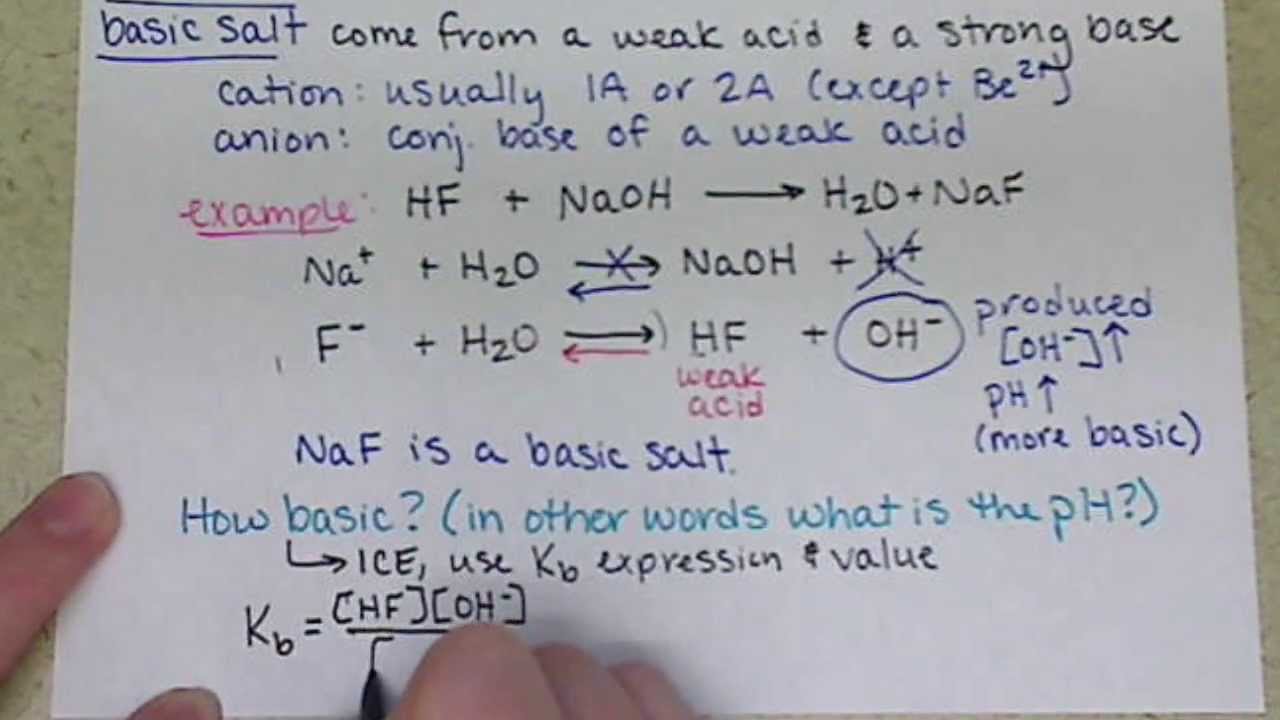 basic salt come from a weak acid & a strong base
cation: usually 1A or 2A (except Be²⁺)
anion: conj. base of a weak acid
example: HF + NaOH ⟶ H₂O + NaF
Na⁺ + H₂O ⇌ NaOH + H⁺
F⁻ + H₂O ⇌ HF + OH⁻ produced
[OH⁻]↑
weak
acid
pH↑
(more basic)
NaF is a basic salt.
How basic? (in other words what is the pH?)
↳ ICE, use Kb expression & value
Kb = [HF][OH⁻]
[